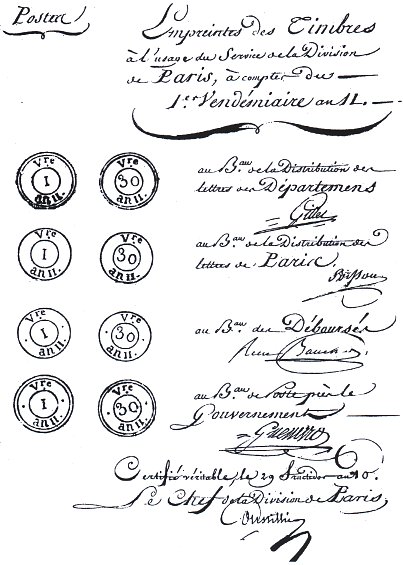 Postes
Empreintes des Timbres
à l'usage du Service de la Division
de Paris, à compter du
1.er Vendémiaire an 11.
Vre 1 an 11. Vre 30 an 11.
au B.au de la Distribution des
lettres des Départemens
Gilles
Vre 1 an 11. Vre 30 an 11.
au B.au de la Distribution des
lettres de Paris.
Vre 1 an 11. Vre 30 an 11.
au B.au des Déboursés
Vre 1 an 11. Vre 30 an 11.
au B.au de Poste près le
Gouvernement
Certifié véritable, le 29 fructidor an 10.
Le Chef de la Division de Paris,